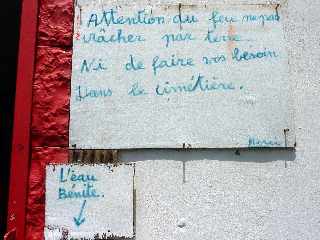 Attention du feu ne pas
crâcher par terre
Ni de faire vos besoin
Dans le cimétière.
Merci
L'éau
Bénite.